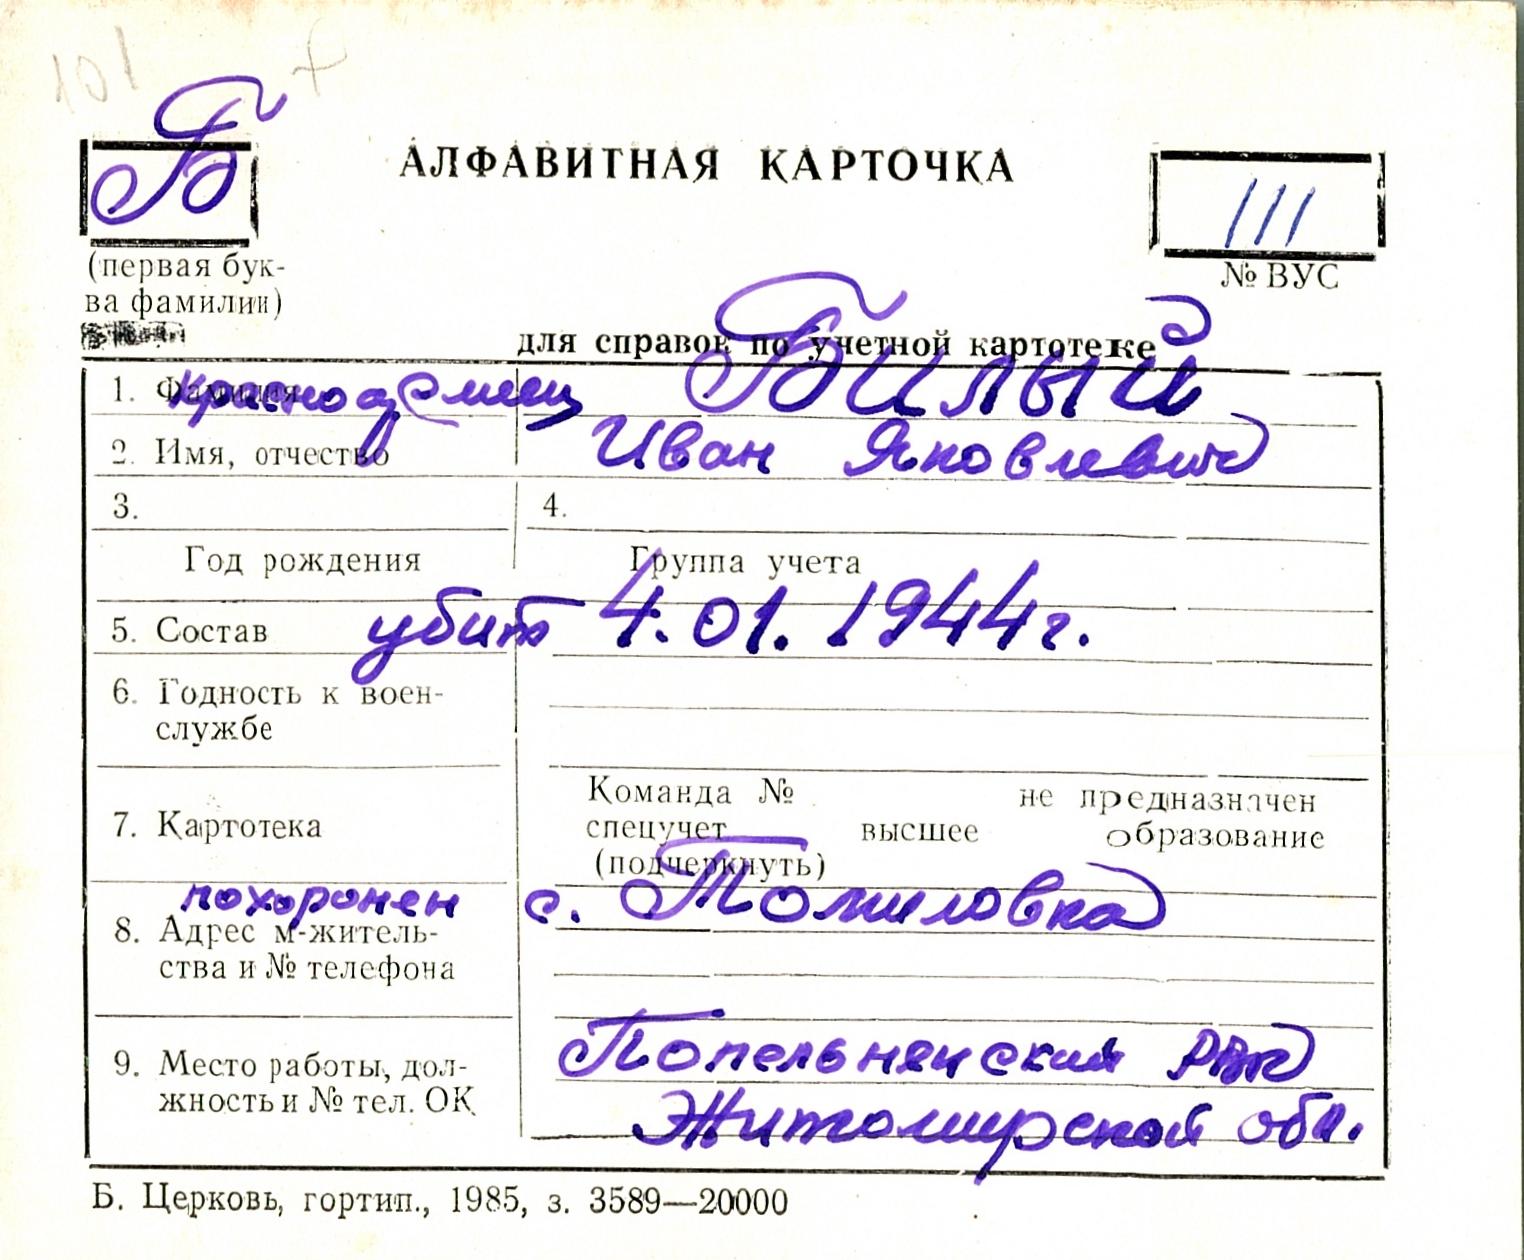 101
Б
АЛФАВИТНАЯ КАРТОЧКА
111
(первая бук-
ва фамилии)
№ ВУС
для справок по учетной картотеке
1. Фамилия красноармеец Билый
2. Имя, отчество Иван Яковлевич
3. 4.
Год рождения Группа учета
5. Состав убит 4.01.1944г.
6. Годность к воен-
службе
Команда № не предназначен
7. Картотека спецучет высшее образование
(подчеркнуть)
похоронен с. Томиловка
8. Адрес м-житель-
ства и № телефона
Попельнянский РВК
9. Место работы, дол-
жность и № тел. ОК
Житомирской обл.
Б. Церковь, гортип., 1985, з. 3589—20000